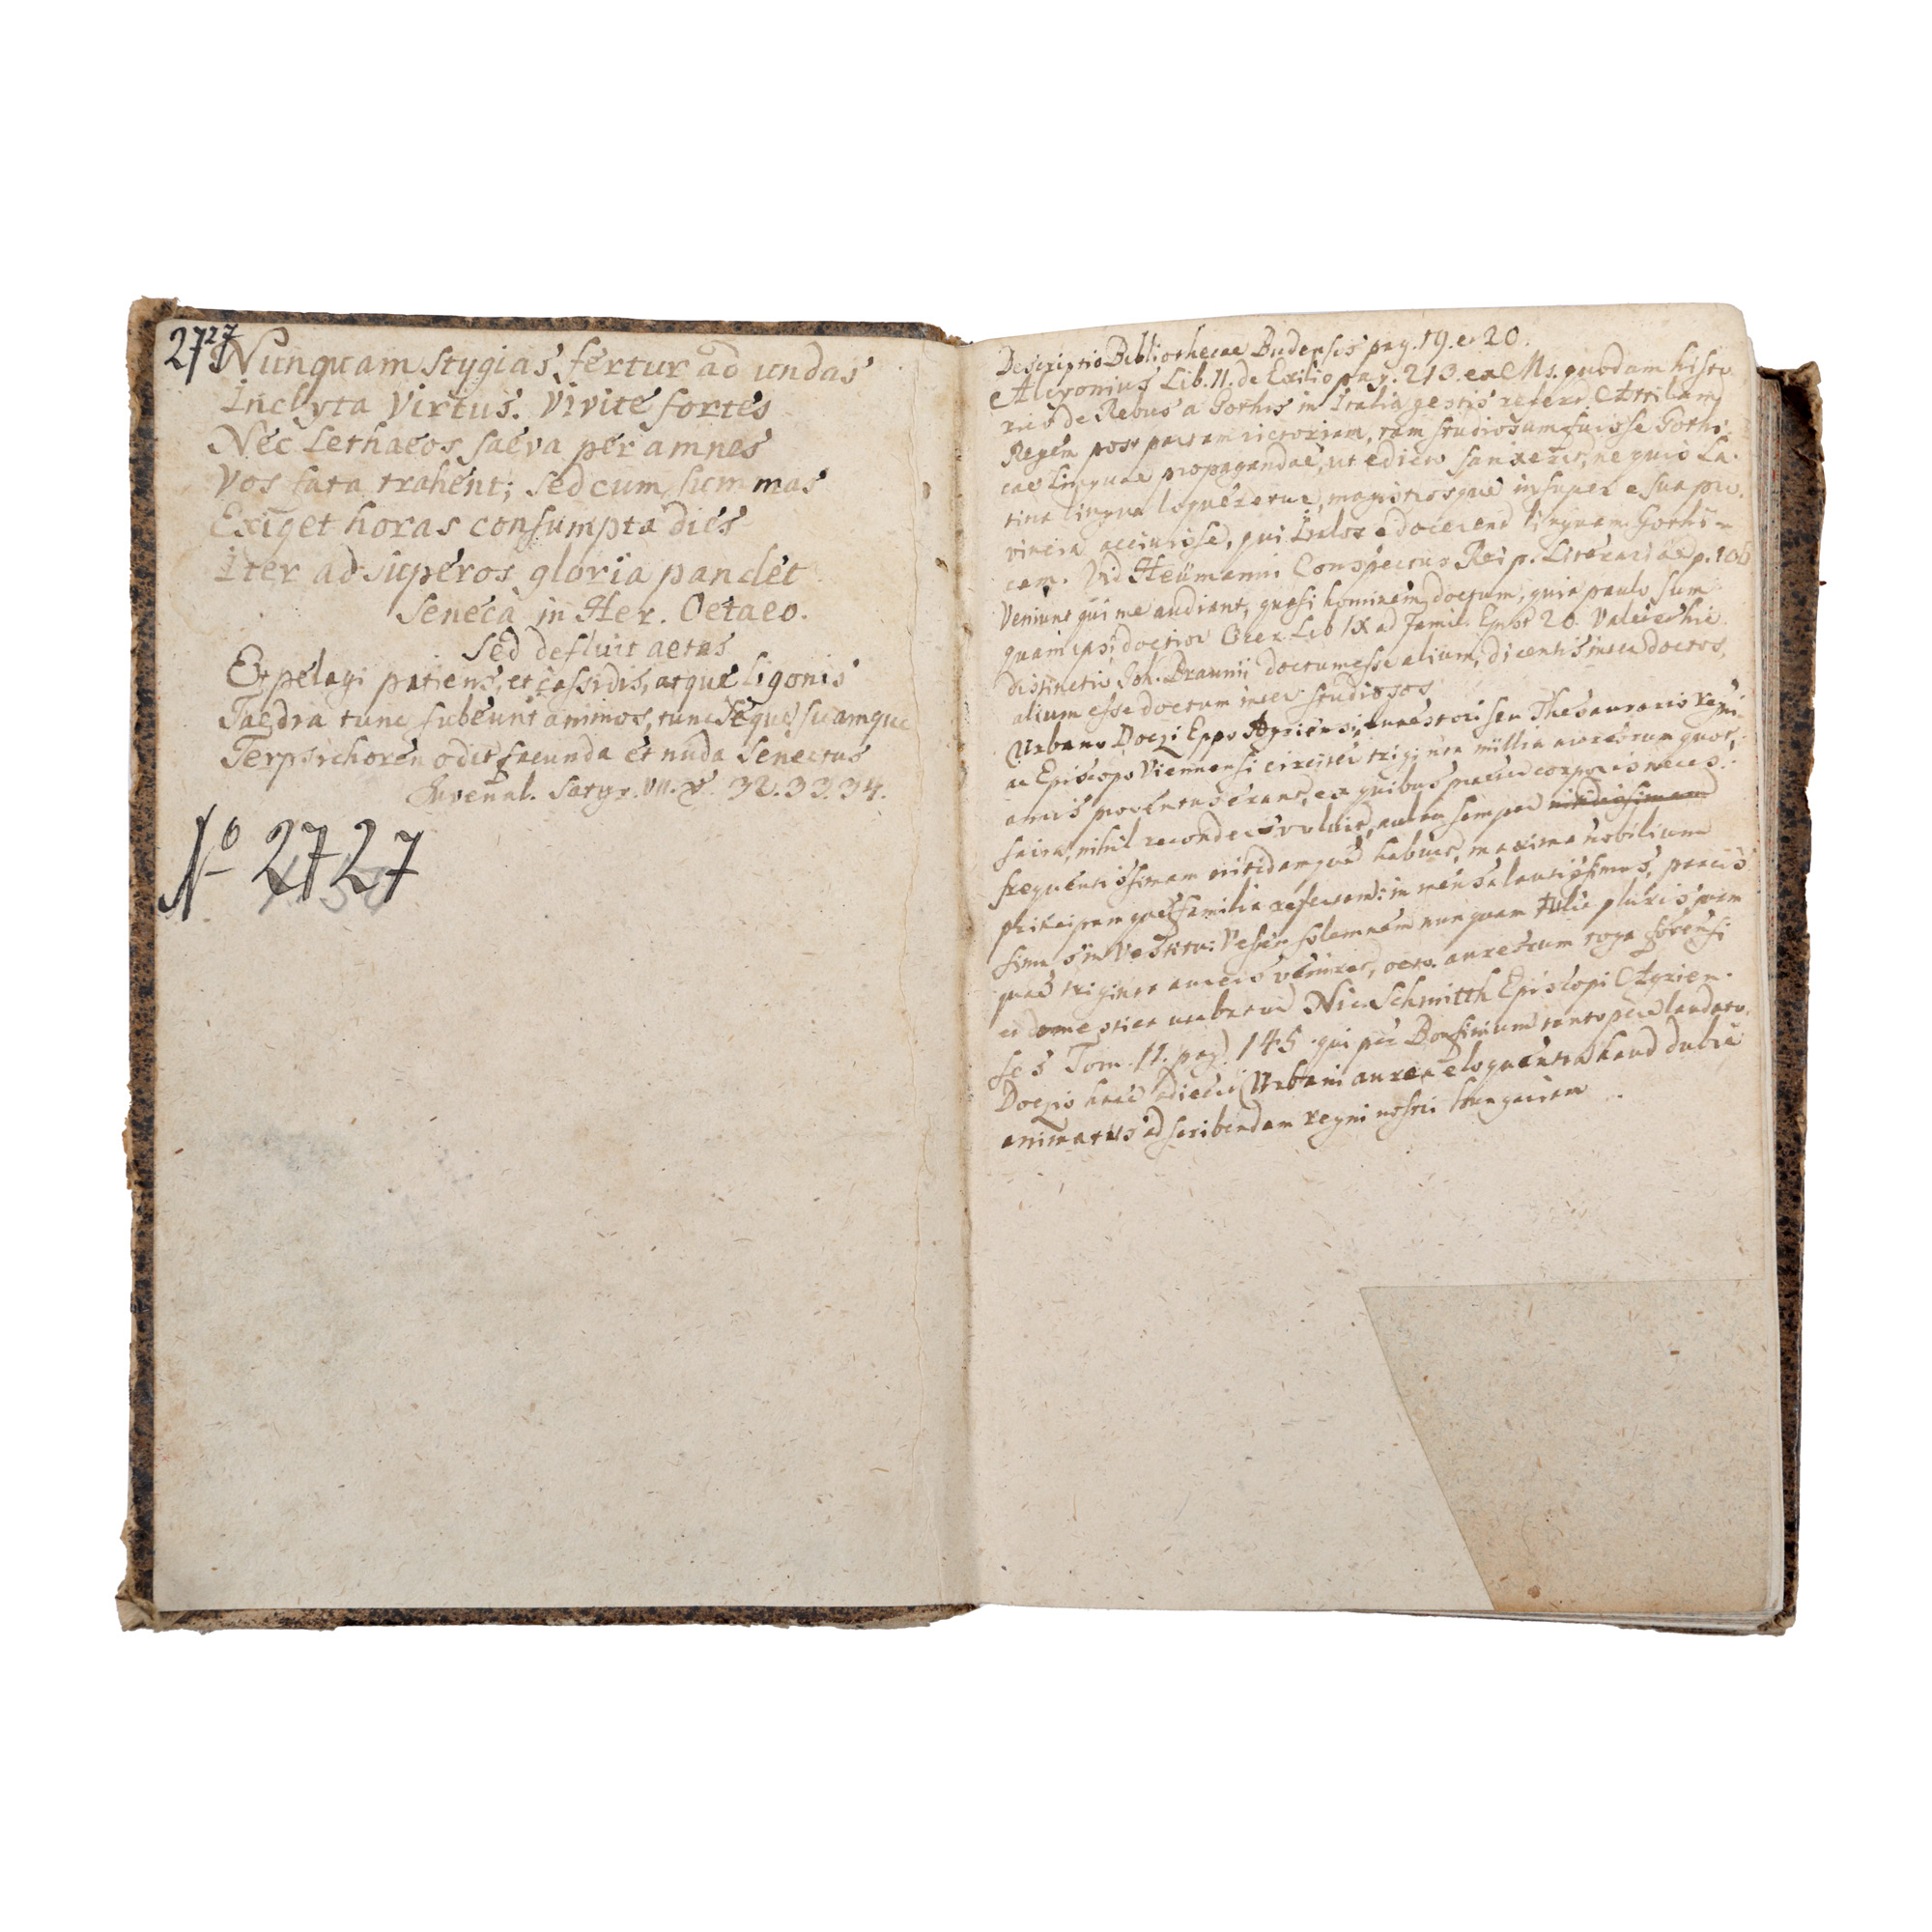 2727
Nunquam Stygias fertur ad undas
Inclyta Virtus. Vivite fortes
Nec Lethaeos saeva per amnes
Vos fata trahent; sed cum summas
Exiget horas consumpta dies
Iter ad superos gloria pandet
Seneca in Her. Oetaeo.
Sed defluit aetas
Et pelagi patiens, et cassidis, atque ligonis
Taedia tunc subeunt animos, tunc seque suamque
Terpsichoren odit facunda et nuda Senectus
Juvenal. Satyr. VII. v. 32.33.34.
No 2727
Descriptio Bibliothecae Budensis pag. 19. e. 20.
Alcyonius Lib. II. de Exilio pag. 213. ex Ms. quodam histo
rico de Rebus a Gothis in Italia gestis refert Attilam
Regem post partam victoriam, tam studiosum fuisse Gothi-
cae Linguae propagandae, ut edicto sanxerit, ne quis La-
tina lingua loqueretur, magistrosque insuper e sua pro-
vincia accivisse, qui Italos edocerent linguam Gothi-
cam. Vid Heümanni Conspectus Reip. Literariae p. 106
Veniunt qui me audiant, quasi hominem doctum, quia paulo sum
quam ipsi doctior Cicer. Lib IX ad Famil. Epist 20. Valet et hic
distinctio Joh. Braunii doctum esse alium, dicentis inter doctos,
alium esse doctum inter studiosos
Urbano Doczi Eppo Agriensi, quaestori seu Thesaurario regni
ac Episcopo Viennensi circiter triginta millia aureorum quot-
annis proventus erant, ex quibus praeter corporis neces-
saria, nihil recondere voluit, aulam semper nitidissimam
frequentissimam nitidamque habuit, maxima nobilium
principumque familia refertam: in mensa lautissimus, parcis
simus in Vestitu: Vestem solemnem nunquam tulit pluris quam
quae triginta aureis veniret, octo aureorum toga forensi
et domestica utebatur Nic. Schmitth Episcopi Agrien-
ses Tom. II. pag. 145. qui per Bonfinium tantopere laudato
Doczio haec adiecit Urbani aurea eloquentia haud dubie
animatus ad scribendam regni nostri